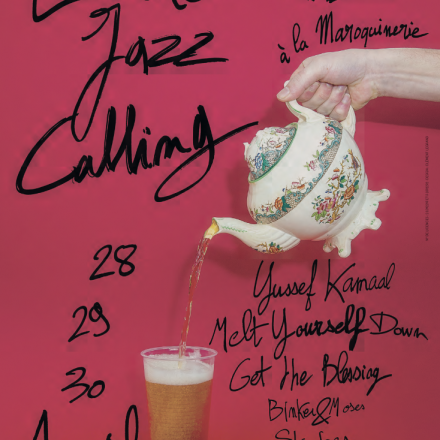 Jazz
Calling
à la Maroquinerie
28
29
30
Yussef Kamaal
Melt Yourself Down
Get the Blessing
Binker & Moses